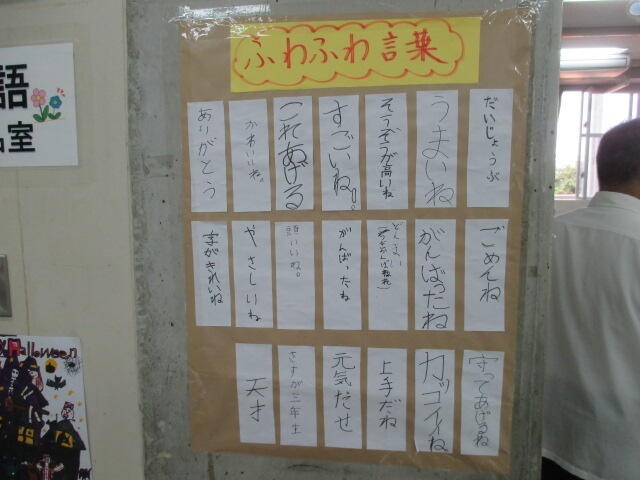 ふわふわ言葉
だいじょうぶ
うまいね
そうぞうが高いね
すごいね。
これあげる
かわいいね。
ありがとう
ごめんね
がんばったね
どんまい
がんばったね
頭いいね。
やさしいね
字がきれいね
守ってあげるね
カッコイイね
上手だね
元気だせ
さすが三年生
天才
語
室
Halloween